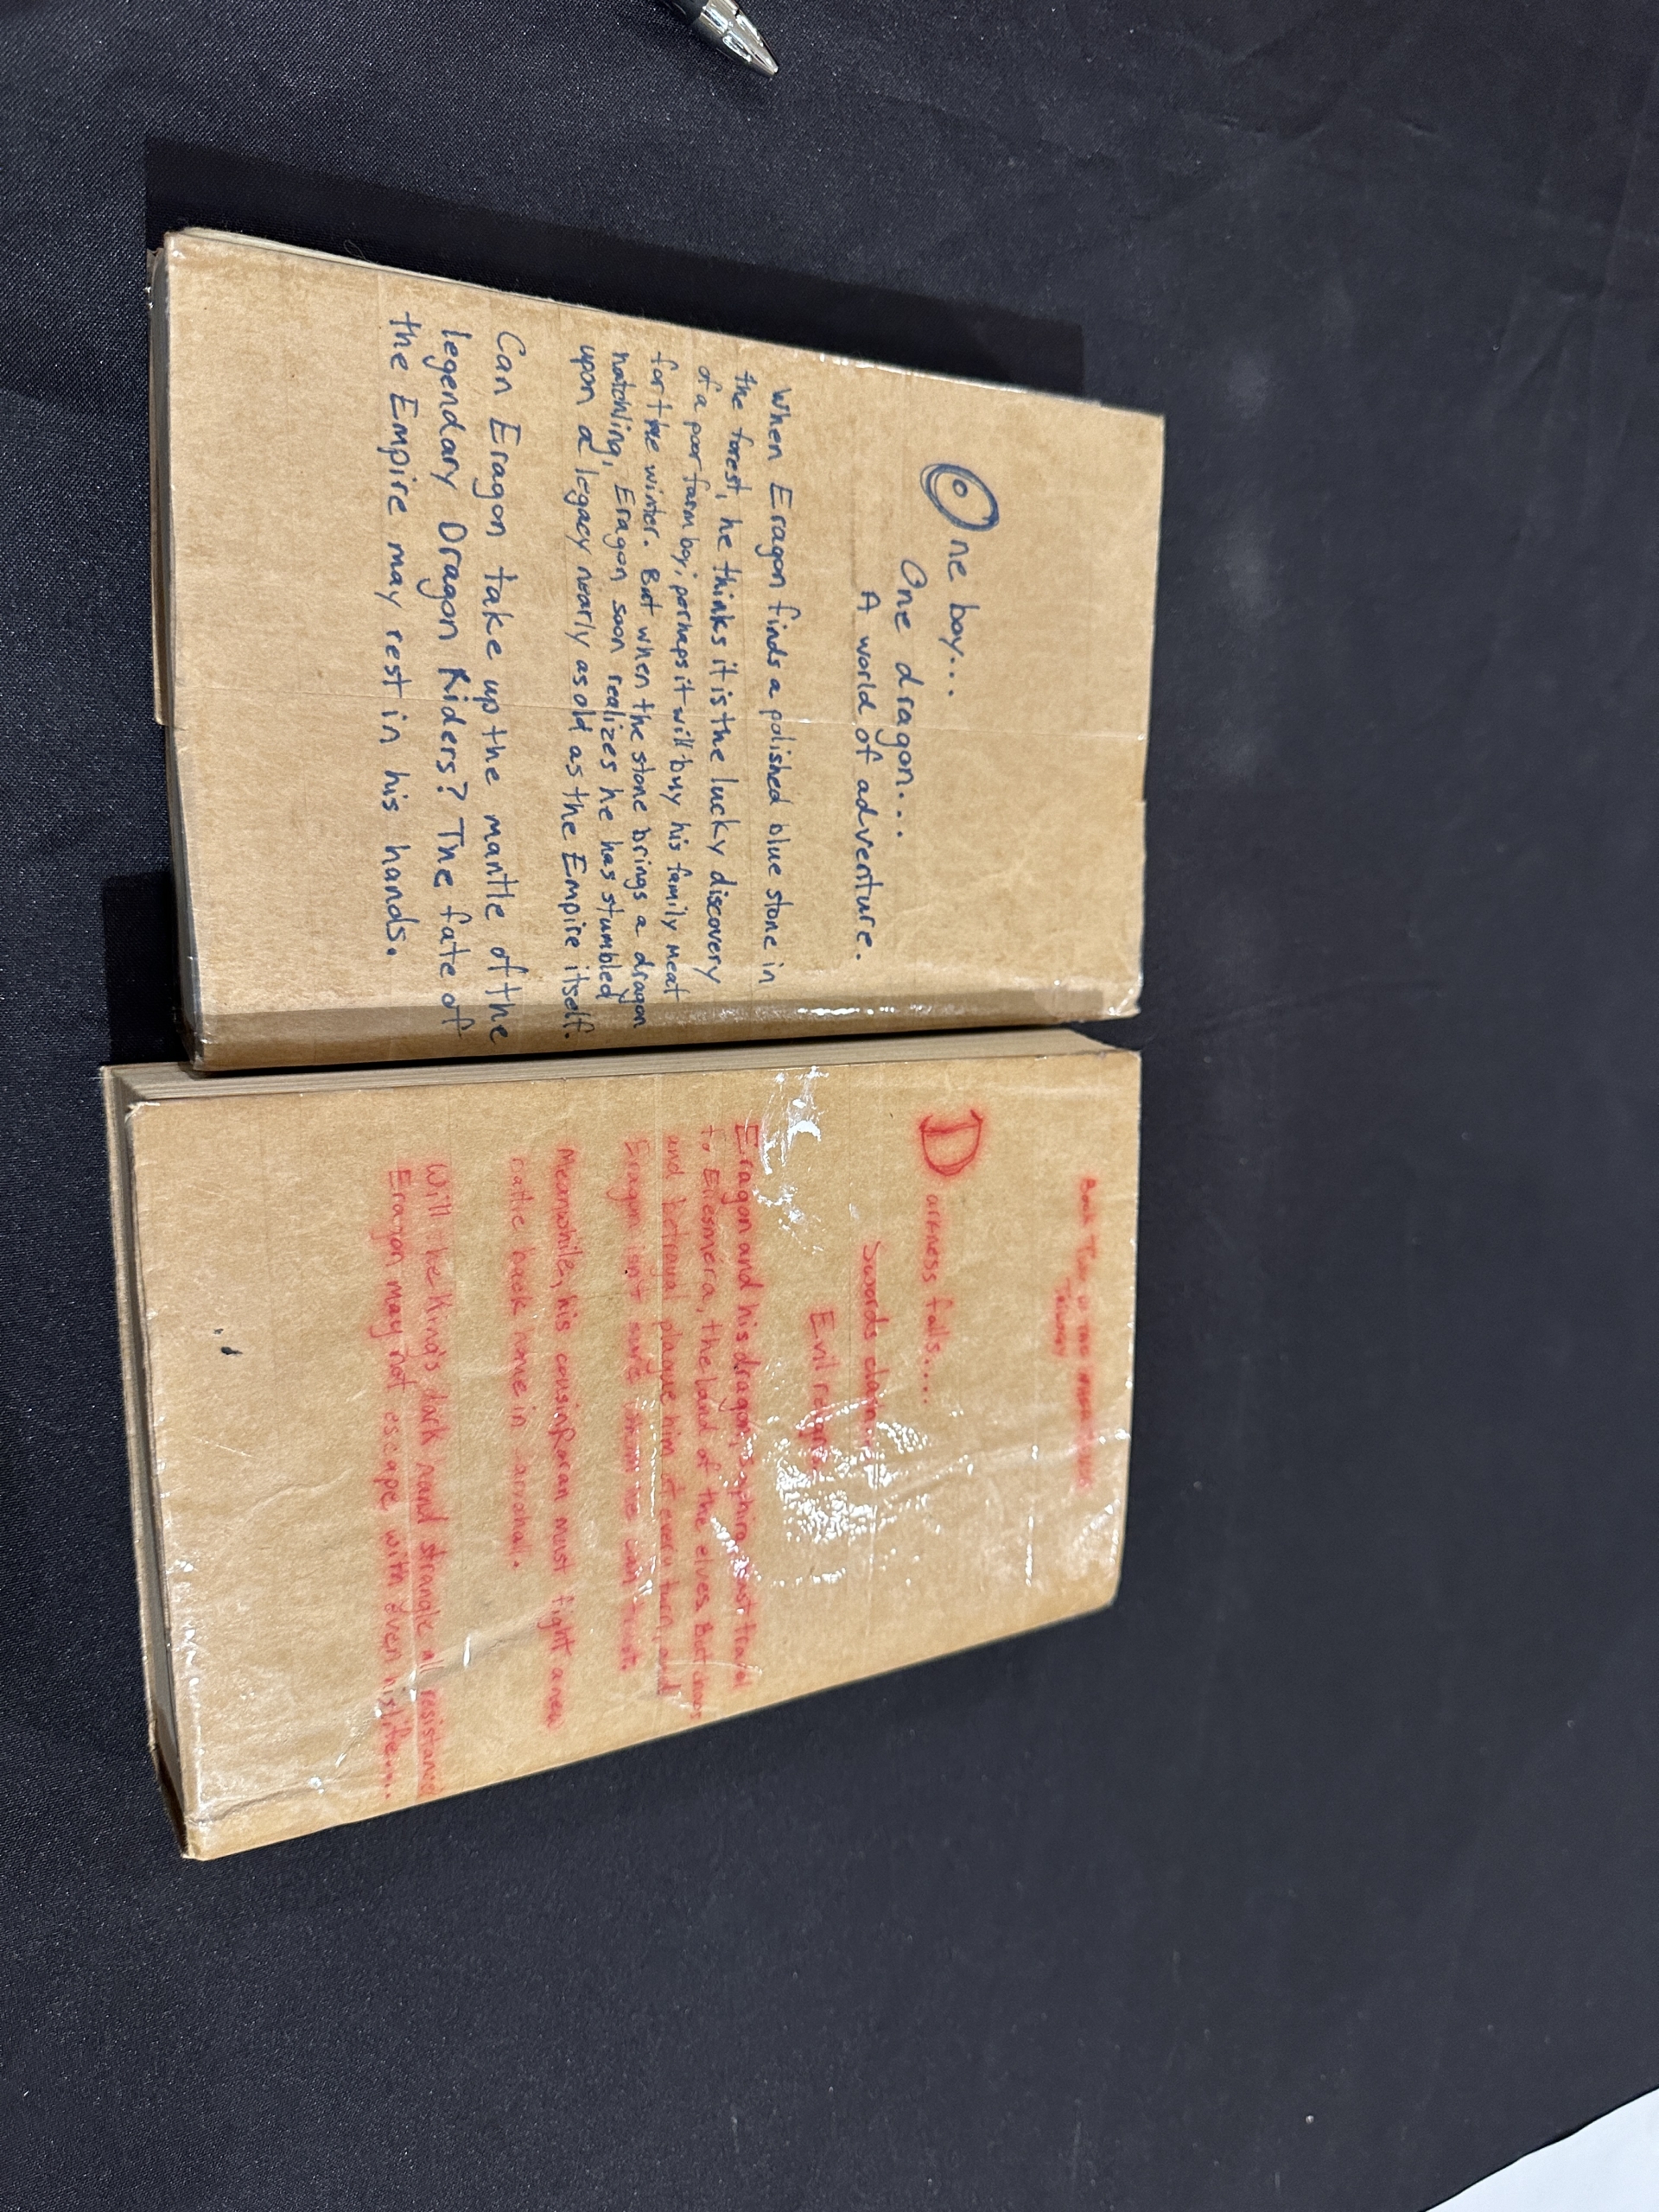 One boy...
One dragon...
A world of adventure.
When Eragon finds a polished blue stone in
the forest, he thinks it is the lucky discovery
of a poor farm boy; perhaps it will buy his family meat
for the winter. But when the stone brings a dragon
hatchling, Eragon soon realizes he has stumbled
upon a legacy nearly as old as the Empire itself.
Can Eragon take up the mantle of the
legendary Dragon Riders? The fate of
the Empire may rest in his hands.
Book Two in the
Trilogy
Darkness falls....
Swords
Evil reigns
Eragon and his dragon, Saphira, must travel
to Ellesméra, the land of the elves. But
and betrayal plague him at every turn, and
Eragon isn't sure whom he can trust.
Meanwhile, his cousin Roran must fight a new
battle back home in
Will the King's dark hand strangle all resistance
Eragon may not escape with even his life...